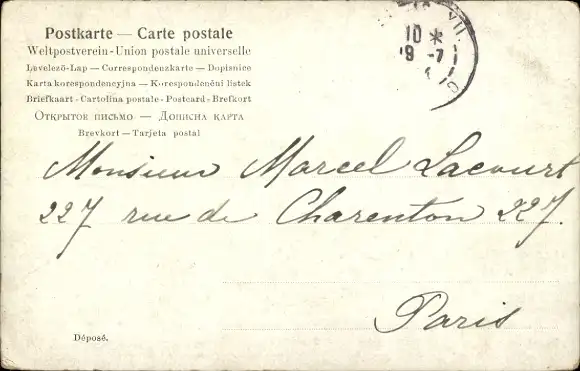 Postkarte — Carte postale
Weltpostverein - Union postale universelle
Levelező-Lap — Correspondenzkarte — Dopisnice
Karta korespondencyjna — Korespondenční listek
Briefkaart - Cartolina postale - Postcard - Brefkort
Открытое письмо — Дописна карта
Brevkort — Tarjeta postal
VII.
10 *
9 - 7
Monsieur Marcel Lacourt
227 rue de Charenton 227.
Paris
Déposé.